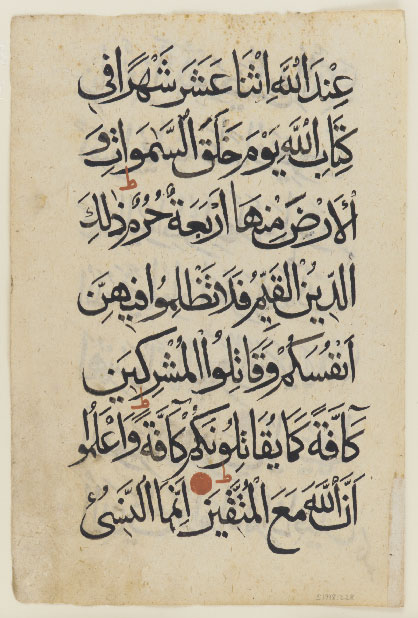 عِنْدَ اللَّهِ اثْنَا عَشَرَ شَهْرًا فِي
كِتَابِ اللَّهِ يَوْمَ خَلَقَ السَّمَوَاتِ وَ
ط
الْأَرْضَ مِنْهَا أَرْبَعَةٌ حُرُمٌ ذَلِكَ
الدِّينُ الْقَيِّمُ فَلَا تَظْلِمُوا فِيهِنَّ
أَنْفُسَكُمْ وَقَاتِلُوا الْمُشْرِكِينَ
ط
كَآفَّةً كَمَا يُقَاتِلُونَكُمْ كَآفَّةً وَاعْلَمُوا
ط
أَنَّ اللَّهَ مَعَ الْمُتَّقِينَ إِنَّمَا النَّسِيءُ